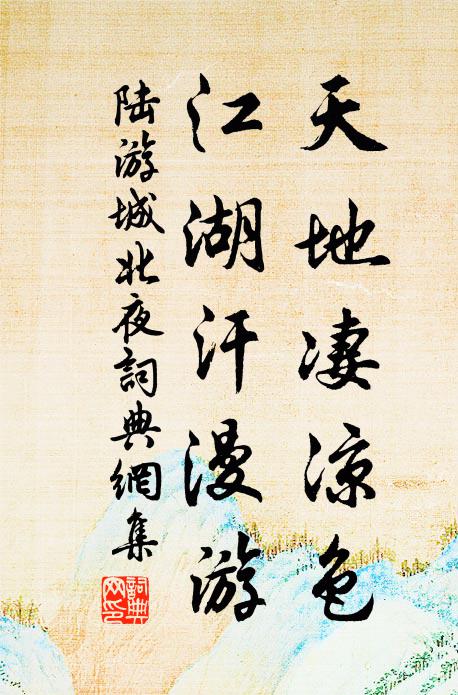 天地凄凉色
江湖汗漫游
陆游城北夜詞典網集
詞典